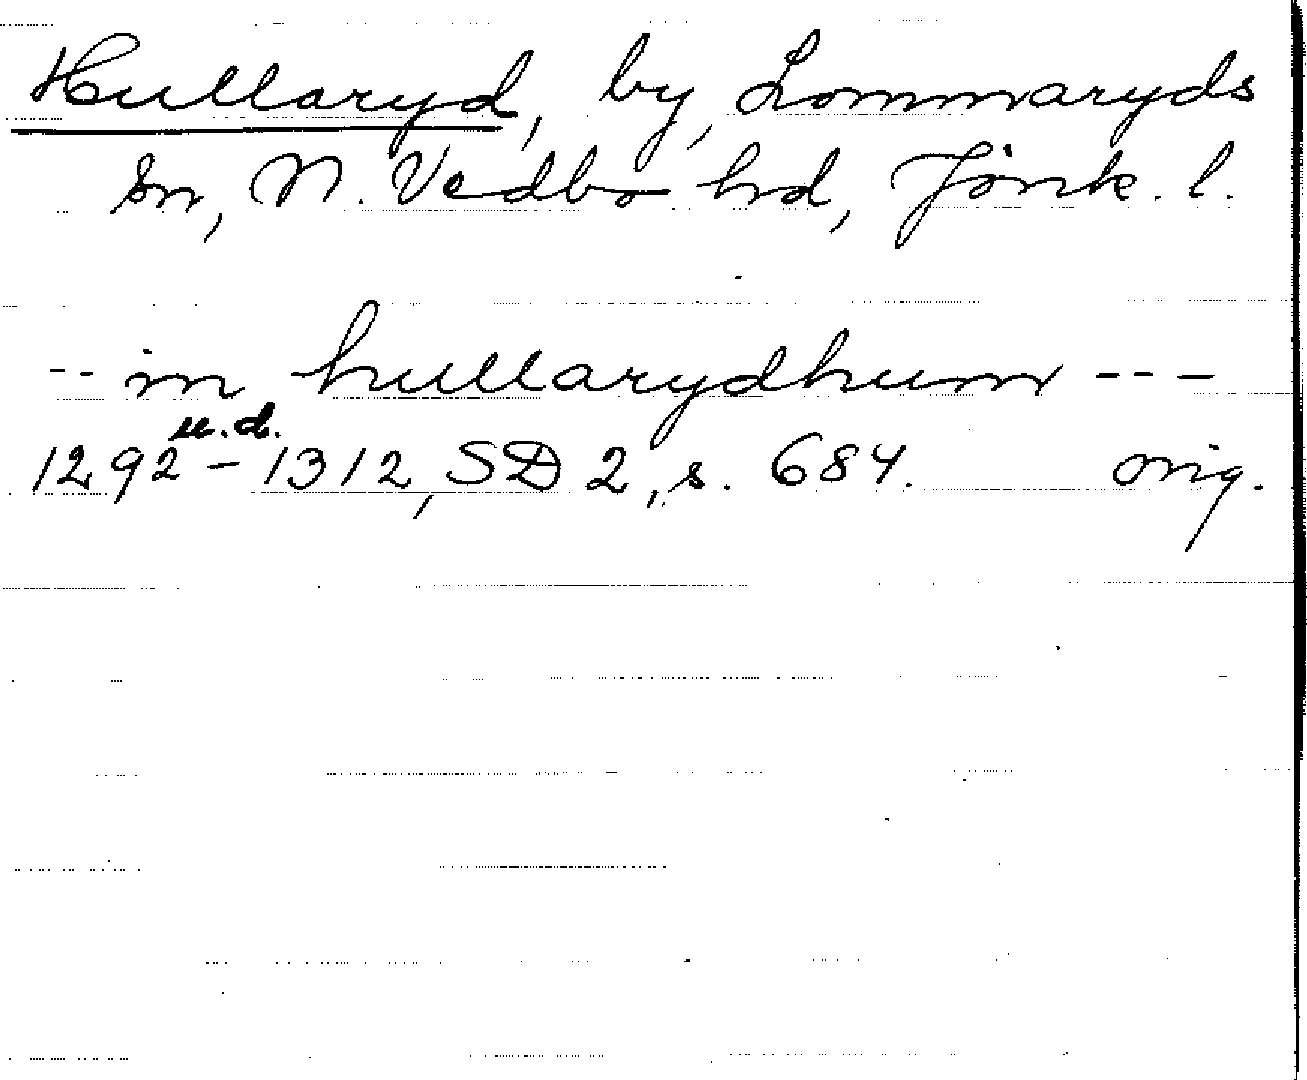 Hullaryd, by, Lommaryds
sn, N. Vedbo hd, Jönk. l.
-- in hullarydhum ---
u.d.
1292-1312, SD 2, s. 684. orig.